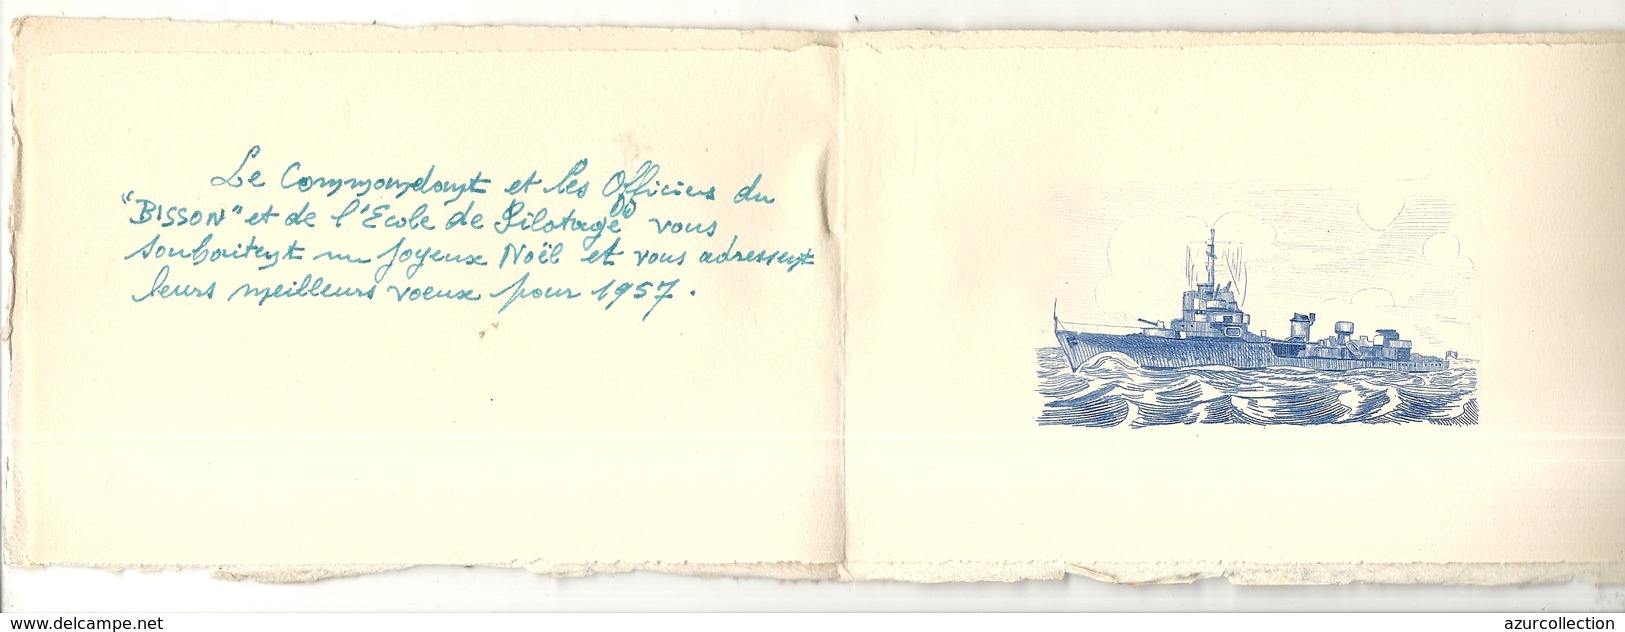 Le Commandant et les Officiers du
"BISSON" et de l'Ecole de Pilotage vous
souhaitent un joyeux Noël et vous adressent
leurs meilleurs voeux pour 1957.
www.delcampe.net
azurcollection